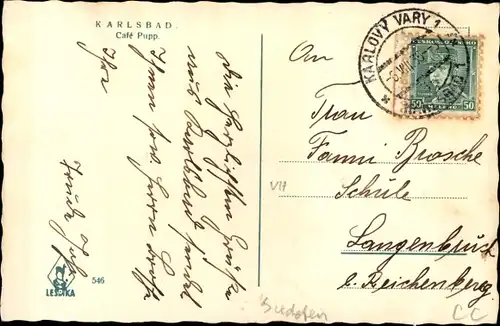 KARLSBAD.
Café Pupp.
Die herzlichsten Grüße
aus Karlsbad sendet
Ihnen sow. Herrn
Ihre
An
Frau
Fanni Brosche
Schule
Langenbruck
b. Reichenberg
KARLOVY VARY 1
ČESKOSLOVENSKO
50 50
VII
LEDERKA
546
Sudeten
CC